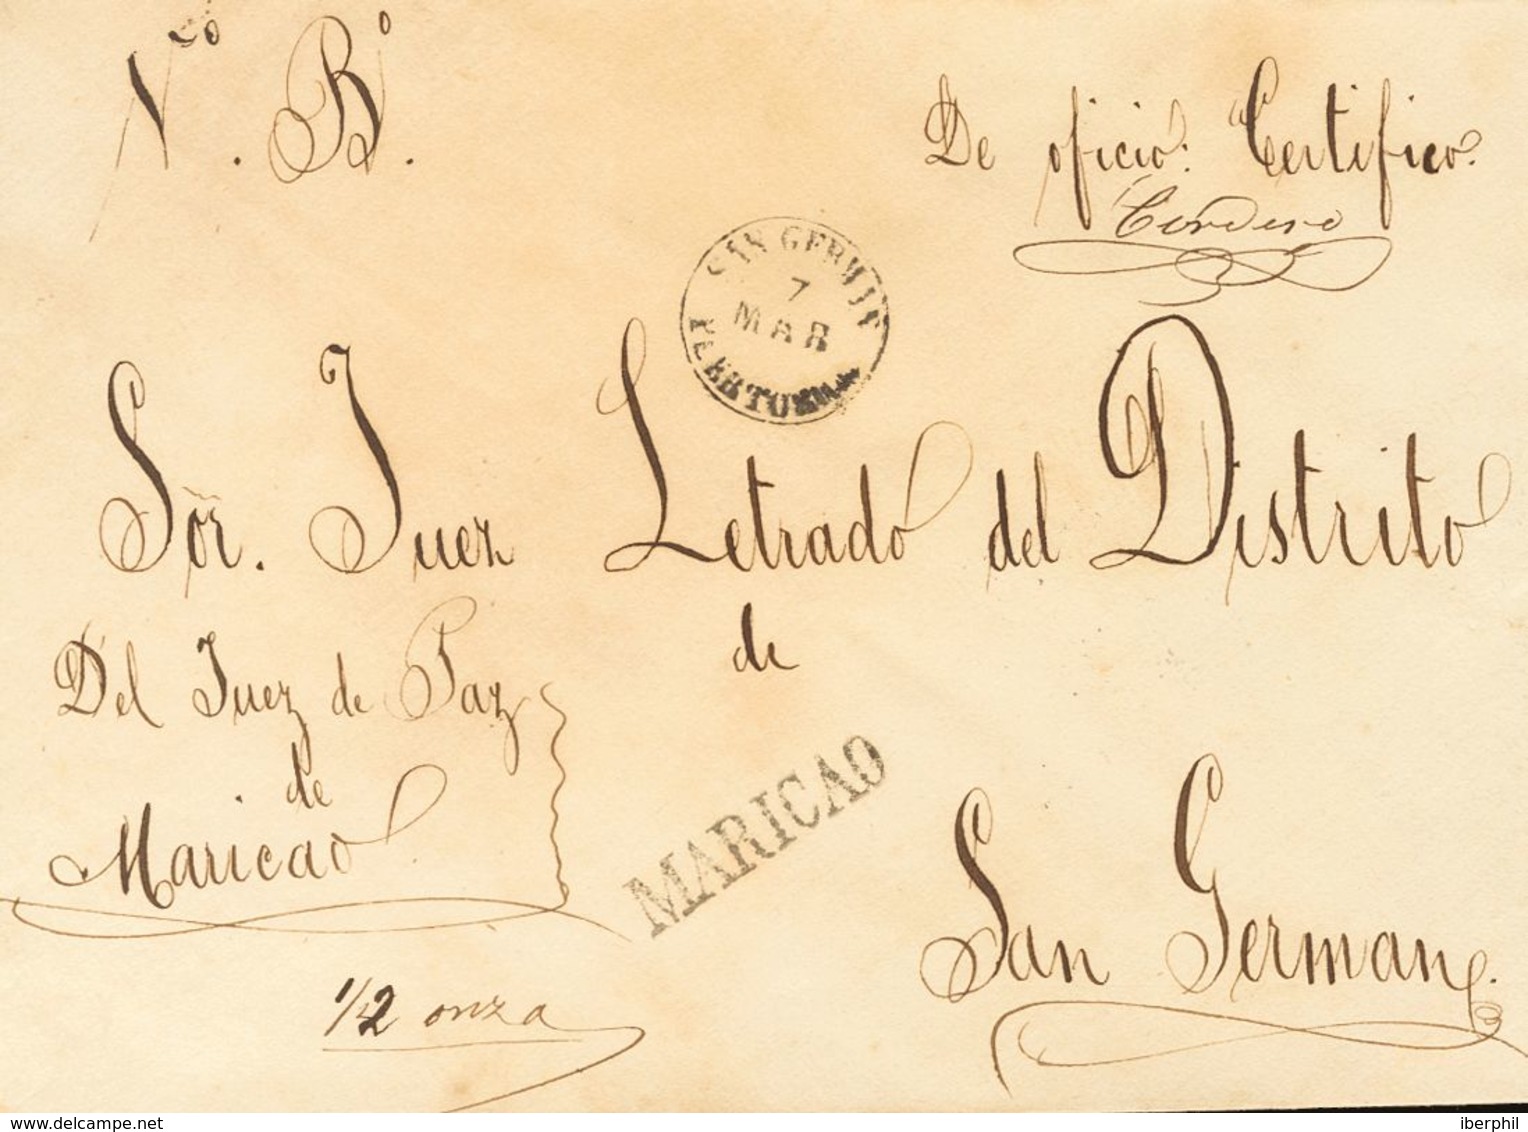 Nº. Bº.
De oficio: Certifico.
Cordero
SAN GERMAN
7
MAR
PUERTO
Sor. Juez Letrado del Distrito
de
Del Juez de Paz
de
Maricao
MARICAO
San German.
1/2 onza
www.delcampe.net
iberphil